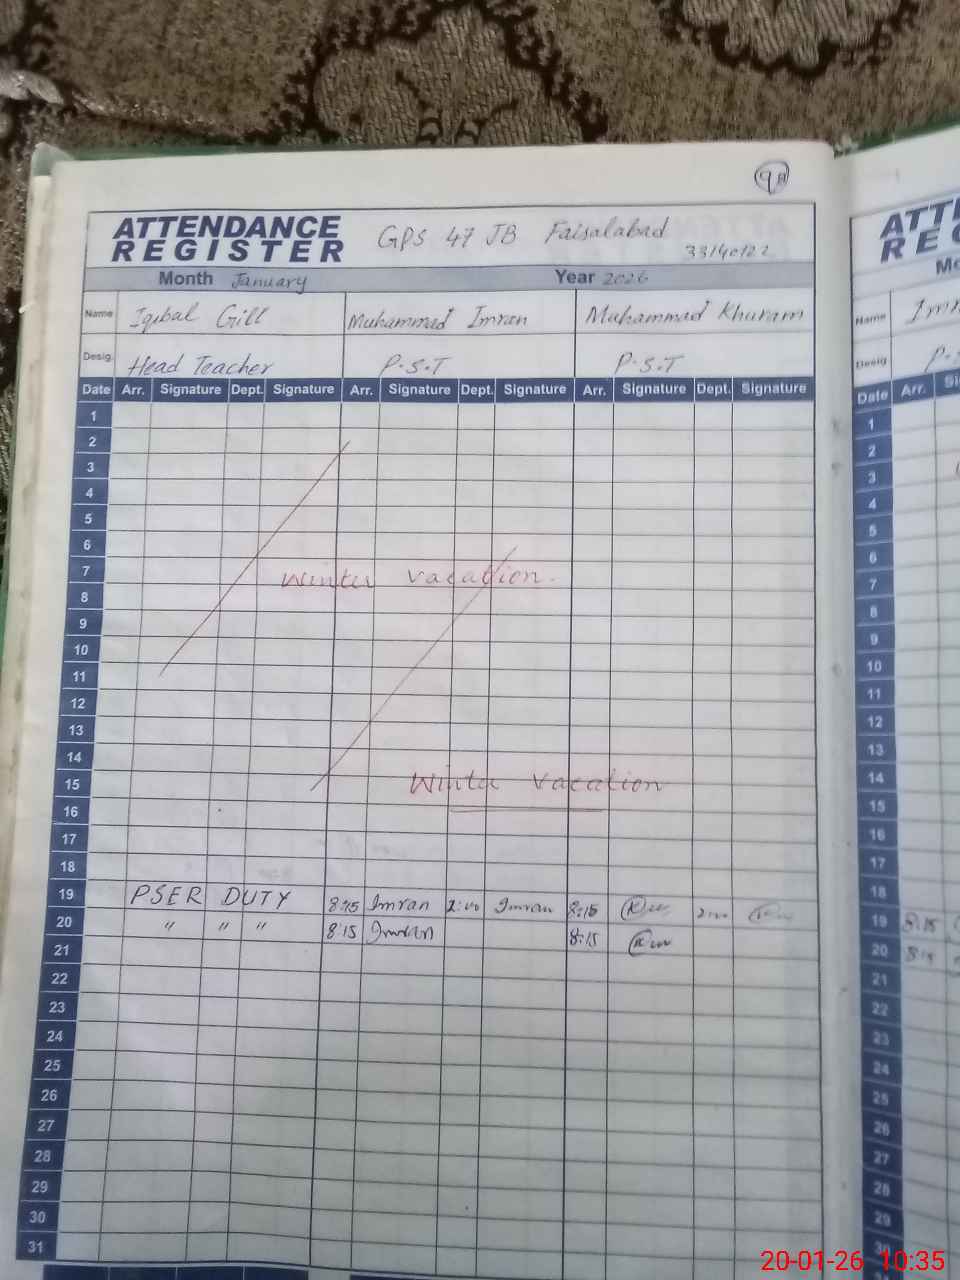 98
ATTENDANCE REGISTER GPS 47 JB Faisalabad
33140122
Month January Year 2026
Name Iqbal Gill Muhammad Imran Muhammad Khuram
Desig. Head Teacher P.S.T P.S.T
Date Arr. Signature Dept. Signature Arr. Signature Dept. Signature Arr. Signature Dept. Signature
1
2
3
4
5
6
7 Winter vacation.
8
9
10
11
12
13
14
15 Winter vacation
16
17
18
19 PSER DUTY 8:15 Imran 2:00 Imran 8:15 2:00
20 " " " 8:15 Imran 8:15
21
22
23
24
25
26
27
28
29
30
31
Name
Desig P.S
Date Arr.
1
2
3
4
5
6
7
8
9
10
11
12
13
14
15
16
17
18
19 8:15
20 8:15
21
22
23
24
25
26
27
28
29
30
20-01-26 10:35